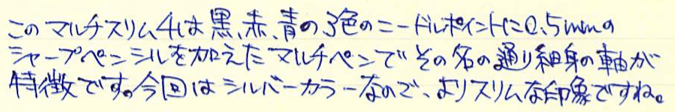 このマルチスリム4は黒、赤、青の3色のニードルポイントに0.5mmの
シャープペンシルを加えたマルチペンでその名の通り細身の軸が
特徴です。今回はシルバーカラーなので、よりスリムな印象ですね。